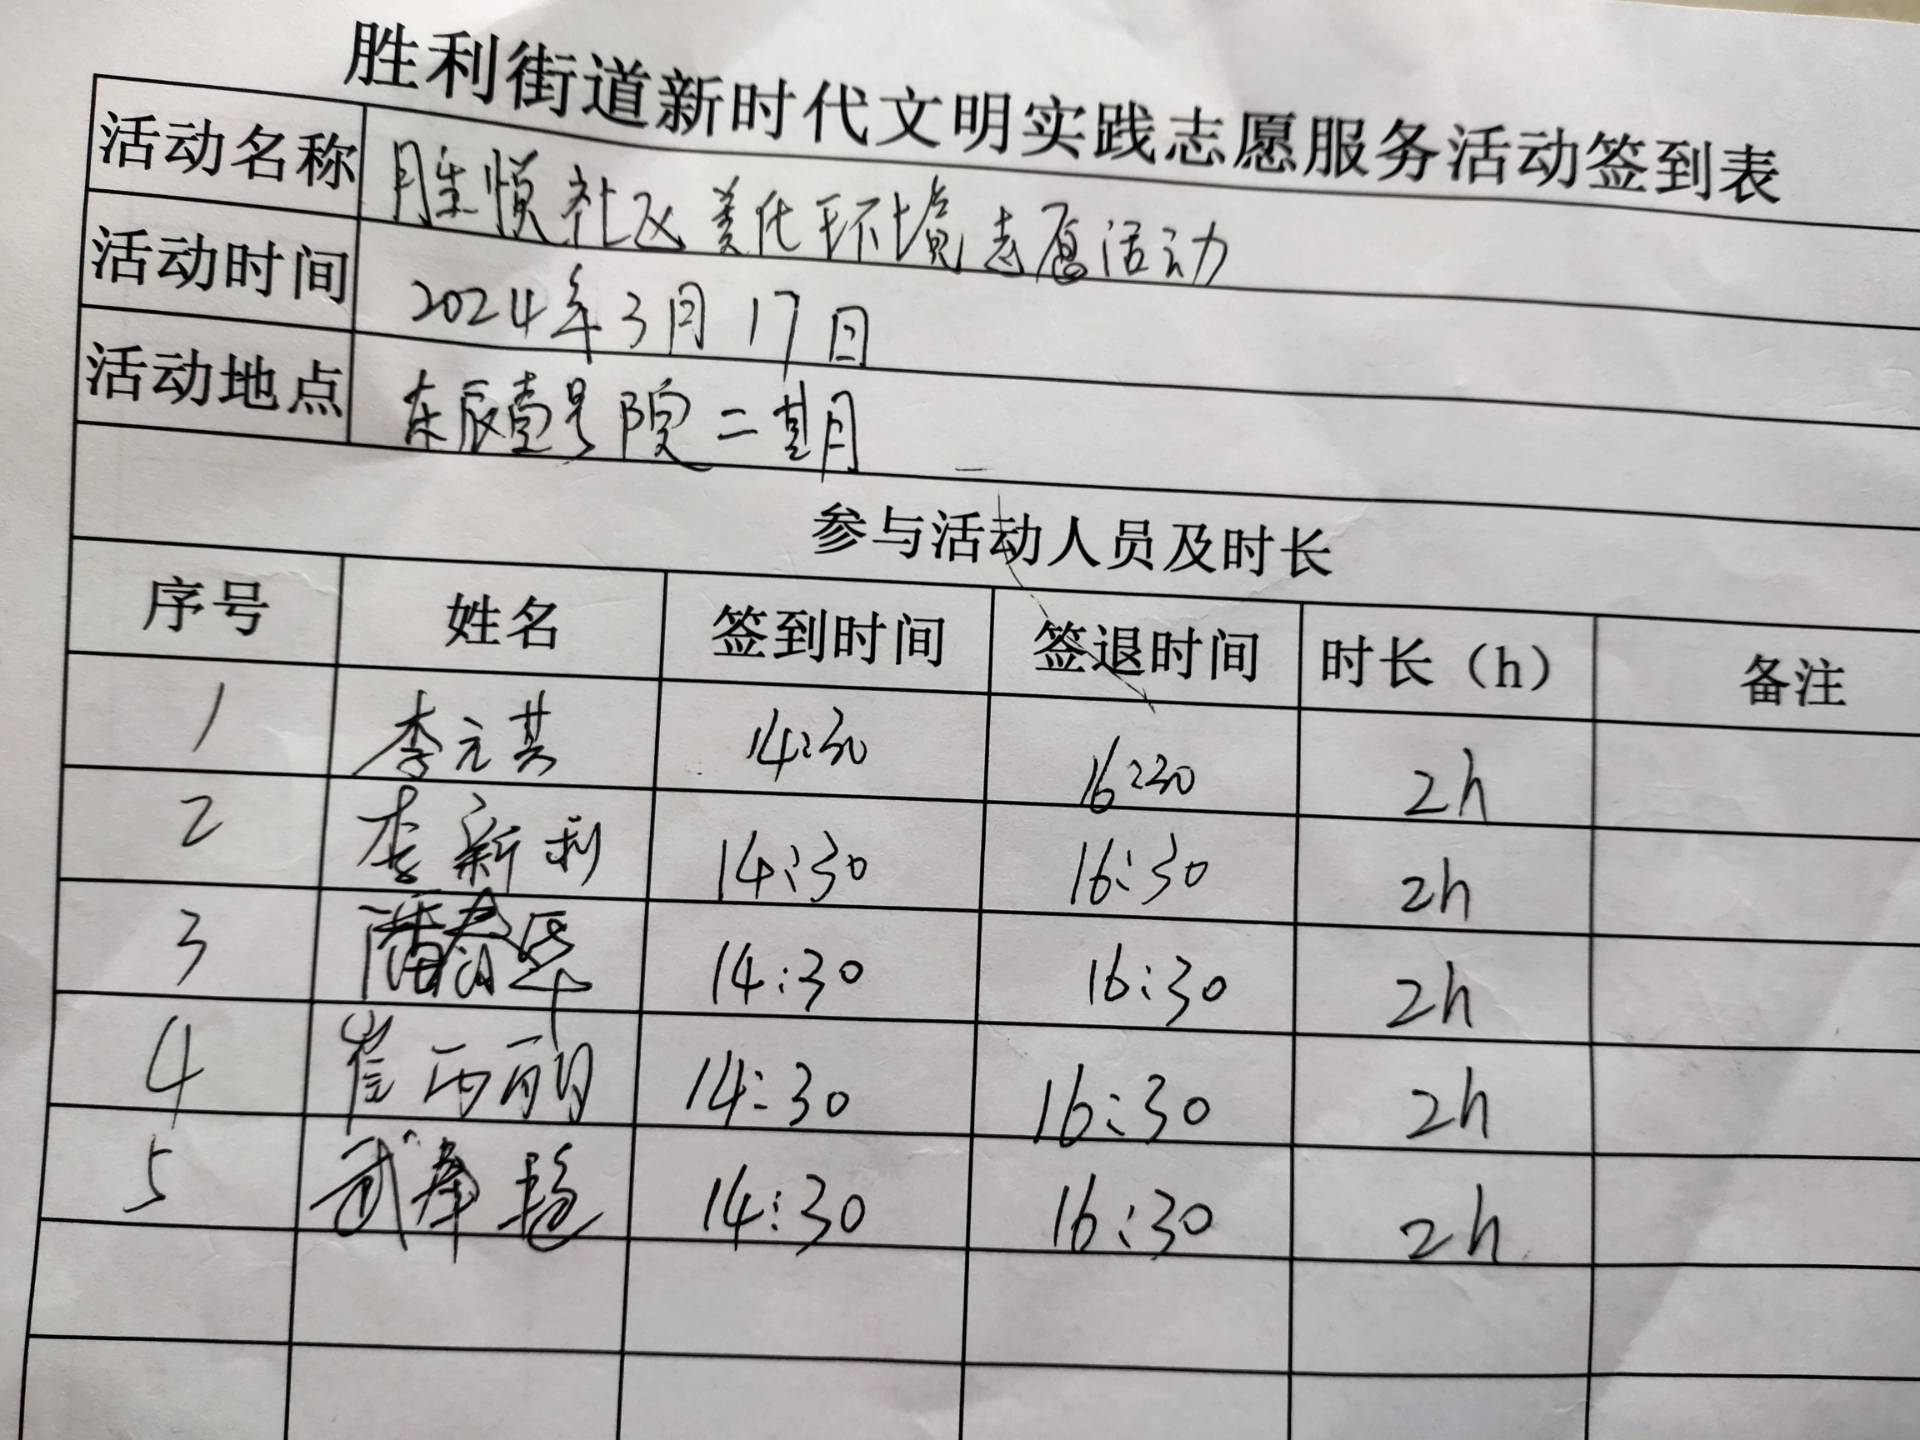 胜利街道新时代文明实践志愿服务活动签到表
活动名称 胜惯社区美化环境志愿活动
活动时间 2024年3月17日
活动地点 东辰壹号院二期
参与活动人员及时长
序号 姓名 签到时间 签退时间 时长（h） 备注
1 李元其 14:30 16:30 2h
2 李新利 14:30 16:30 2h
3 潘 14:30 16:30 2h
4 崔丙丽 14:30 16:30 2h
5 武 14:30 16:30 2h